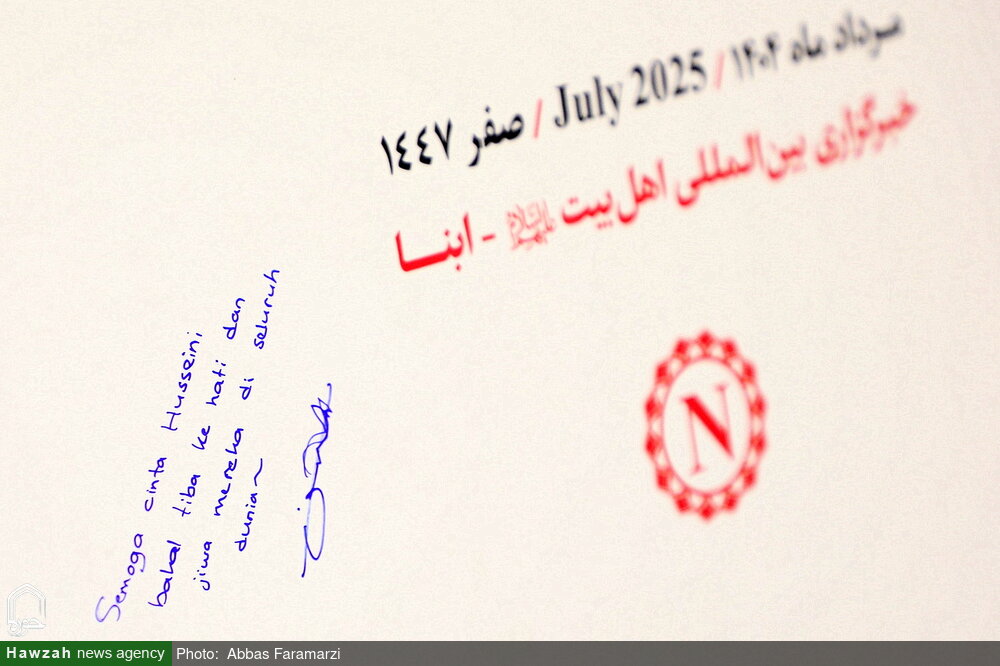 مرداد ماه ۱۴۰۴ / July 2025 / صفر ١٤٤٧
خبرگزاری بین‌المللی اهل‌بیت علیهم‌السلام - ابنا
N
Semoga cinta Husseini
bakal tiba ke hati dan
jiwa mereka di seluruh
dunia~
Hawzah news agency
Photo: Abbas Faramarzi